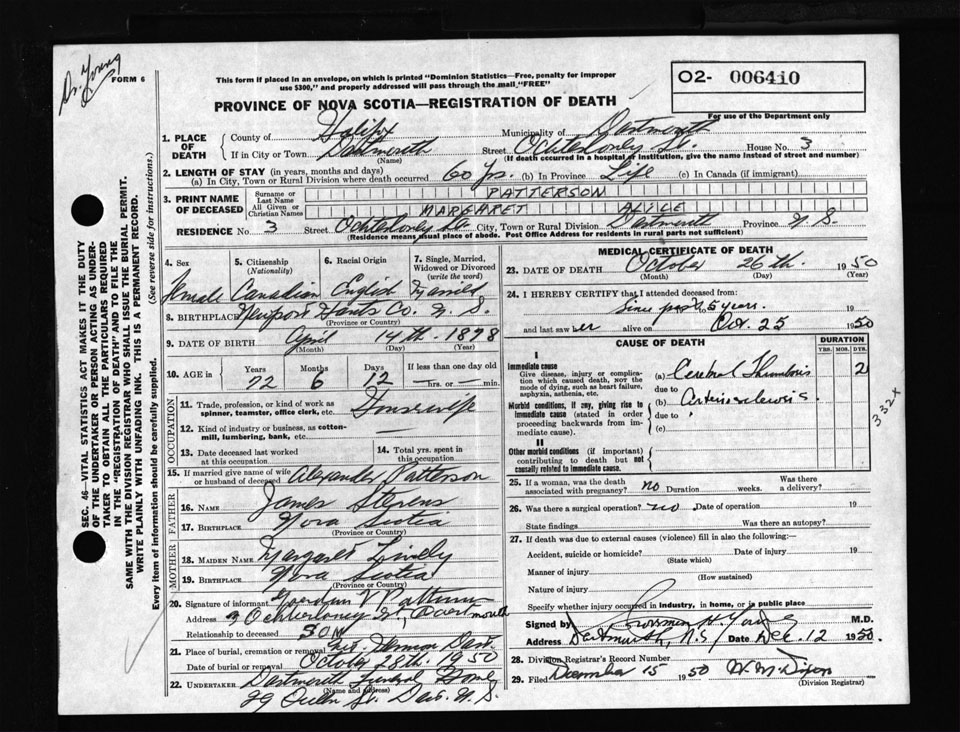 Dr. Young
FORM 6
This form if placed in an envelope, on which is printed "Dominion Statistics—Free, penalty for improper
use $300," and properly addressed will pass through the mail "FREE"
O2- 006410
For use of the Department only
PROVINCE OF NOVA SCOTIA—REGISTRATION OF DEATH
SEC. 46—VITAL STATISTICS ACT MAKES IT THE DUTY
OF THE UNDERTAKER OR PERSON ACTING AS UNDER-
TAKER TO OBTAIN ALL THE PARTICULARS REQUIRED
IN THE "REGISTRATION OF DEATH" AND TO FILE THE
SAME WITH THE DIVISION REGISTRAR WHO SHALL ISSUE THE BURIAL PERMIT.
WRITE PLAINLY WITH UNFADING INK. THIS IS A PERMANENT RECORD.
Every item of information should be carefully supplied. (See reverse side for instructions.)
1. PLACE OF DEATH
County of Halifax Municipality of Dartmouth
If in City or Town Dartmouth Street Ochterloney St. House No. 3
(Name) (If death occurred in a hospital or institution, give the name instead of street and number)
2. LENGTH OF STAY (in years, months and days)
(a) In City, Town or Rural Division where death occurred 60 yrs. (b) In Province Life (c) In Canada (if immigrant)
3. PRINT NAME OF DECEASED
Surname or Last Name PATTERSON
All Given or Christian Names MARGARET ALICE
RESIDENCE No. 3 Street Ochterloney St. City, Town or Rural Division Dartmouth Province N. S.
(Residence means usual place of abode. Post Office Address for residents in rural parts not sufficient)
4. Sex 5. Citizenship (Nationality) 6. Racial Origin 7. Single, Married, Widowed or Divorced (write the word)
female Canadian English Married
8. BIRTHPLACE Newport Hants Co. N. S.
(Province or Country)
9. DATE OF BIRTH April 14th. 1878
(Month) (Day) (Year)
10. AGE in Years Months Days If less than one day old
72 6 12 — hrs. or — min.
OCCUPATION
11. Trade, profession or kind of work as spinner, teamster, office clerk, etc. Housewife
12. Kind of industry or business, as cotton-mill, lumbering, bank, etc. —
13. Date deceased last worked at this occupation
14. Total yrs. spent in this occupation
15. If married give name of wife or husband of deceased Alexander Patterson
FATHER
16. Name James Stevens
17. BIRTHPLACE Nova Scotia
(Province or Country)
MOTHER
18. MAIDEN NAME Margaret
19. BIRTHPLACE Nova Scotia
(Province or Country)
20. Signature of informant Gordon V Patterson
Address 3 Ochterloney St, Dartmouth
Relationship to deceased SON
21. Place of burial, cremation or removal Mt. Hermon Dart.
Date of burial or removal October 28th. 1950
22. UNDERTAKER Dartmouth Funeral Home
(Name and address)
29 Queen St. Dart. N. S.
MEDICAL CERTIFICATE OF DEATH
23. DATE OF DEATH October 26th. 1950
(Month) (Day) (Year)
24. I HEREBY CERTIFY that I attended deceased from:
Since past 5 years. 19
and last saw her alive on Oct. 25 1950
CAUSE OF DEATH
DURATION
YRS. MOS. DYS.
I
Immediate cause
Give disease, injury or complication which caused death, not the mode of dying, such as heart failure, asphyxia, asthenia, etc.
(a) Cerebral Thrombosis 2
due to
(b) Arteriosclerosis
Morbid conditions, if any, giving rise to immediate cause (stated in order proceeding backwards from immediate cause).
due to
(c)
332x
II
Other morbid conditions (if important) contributing to death but not causally related to immediate cause.
25. If a woman, was the death associated with pregnancy? no Duration weeks. Was there a delivery?
26. Was there a surgical operation? no Date of operation 19
State findings Was there an autopsy?
27. If death was due to external causes (violence) fill in also the following:—
Accident, suicide or homicide? Date of injury 19
(State which)
Manner of injury
(How sustained)
Nature of injury
Specify whether injury occurred in industry, in home, or in public place
Signed by H. Young M.D.
Address Dartmouth, N.S Date Dec. 12 1950.
28. Division Registrar's Record Number
29. Filed December 15 1950 W. M. Dixon
(Division Registrar)